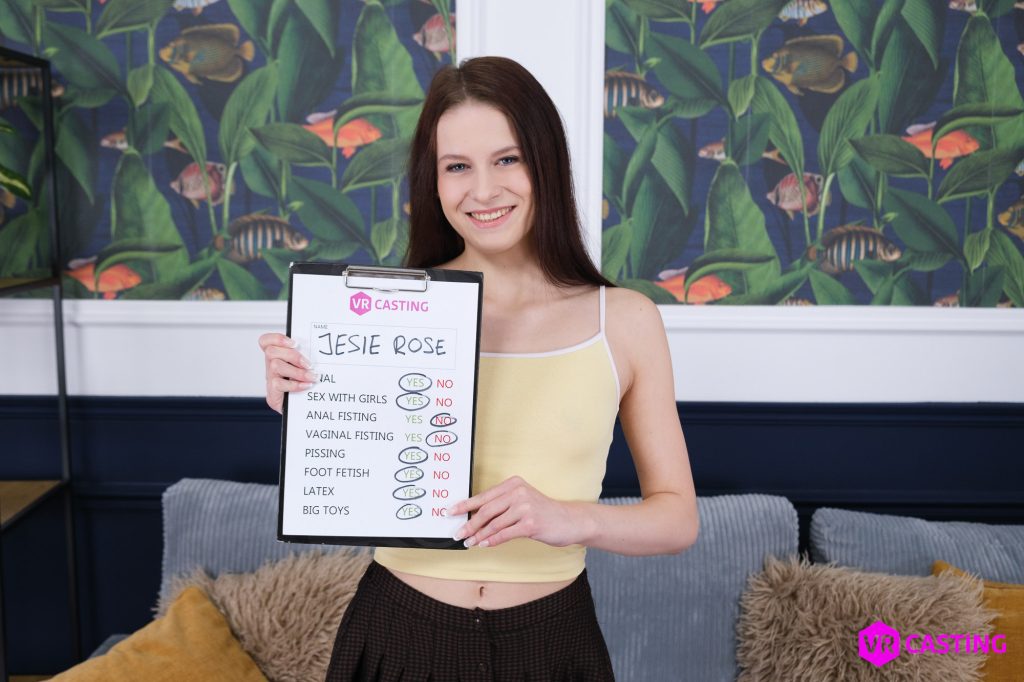 VR CASTING
NAME
JESIE ROSE
ANAL YES NO
SEX WITH GIRLS YES NO
ANAL FISTING YES NO
VAGINAL FISTING YES NO
PISSING YES NO
FOOT FETISH YES NO
LATEX YES NO
BIG TOYS YES NO
VR CASTING